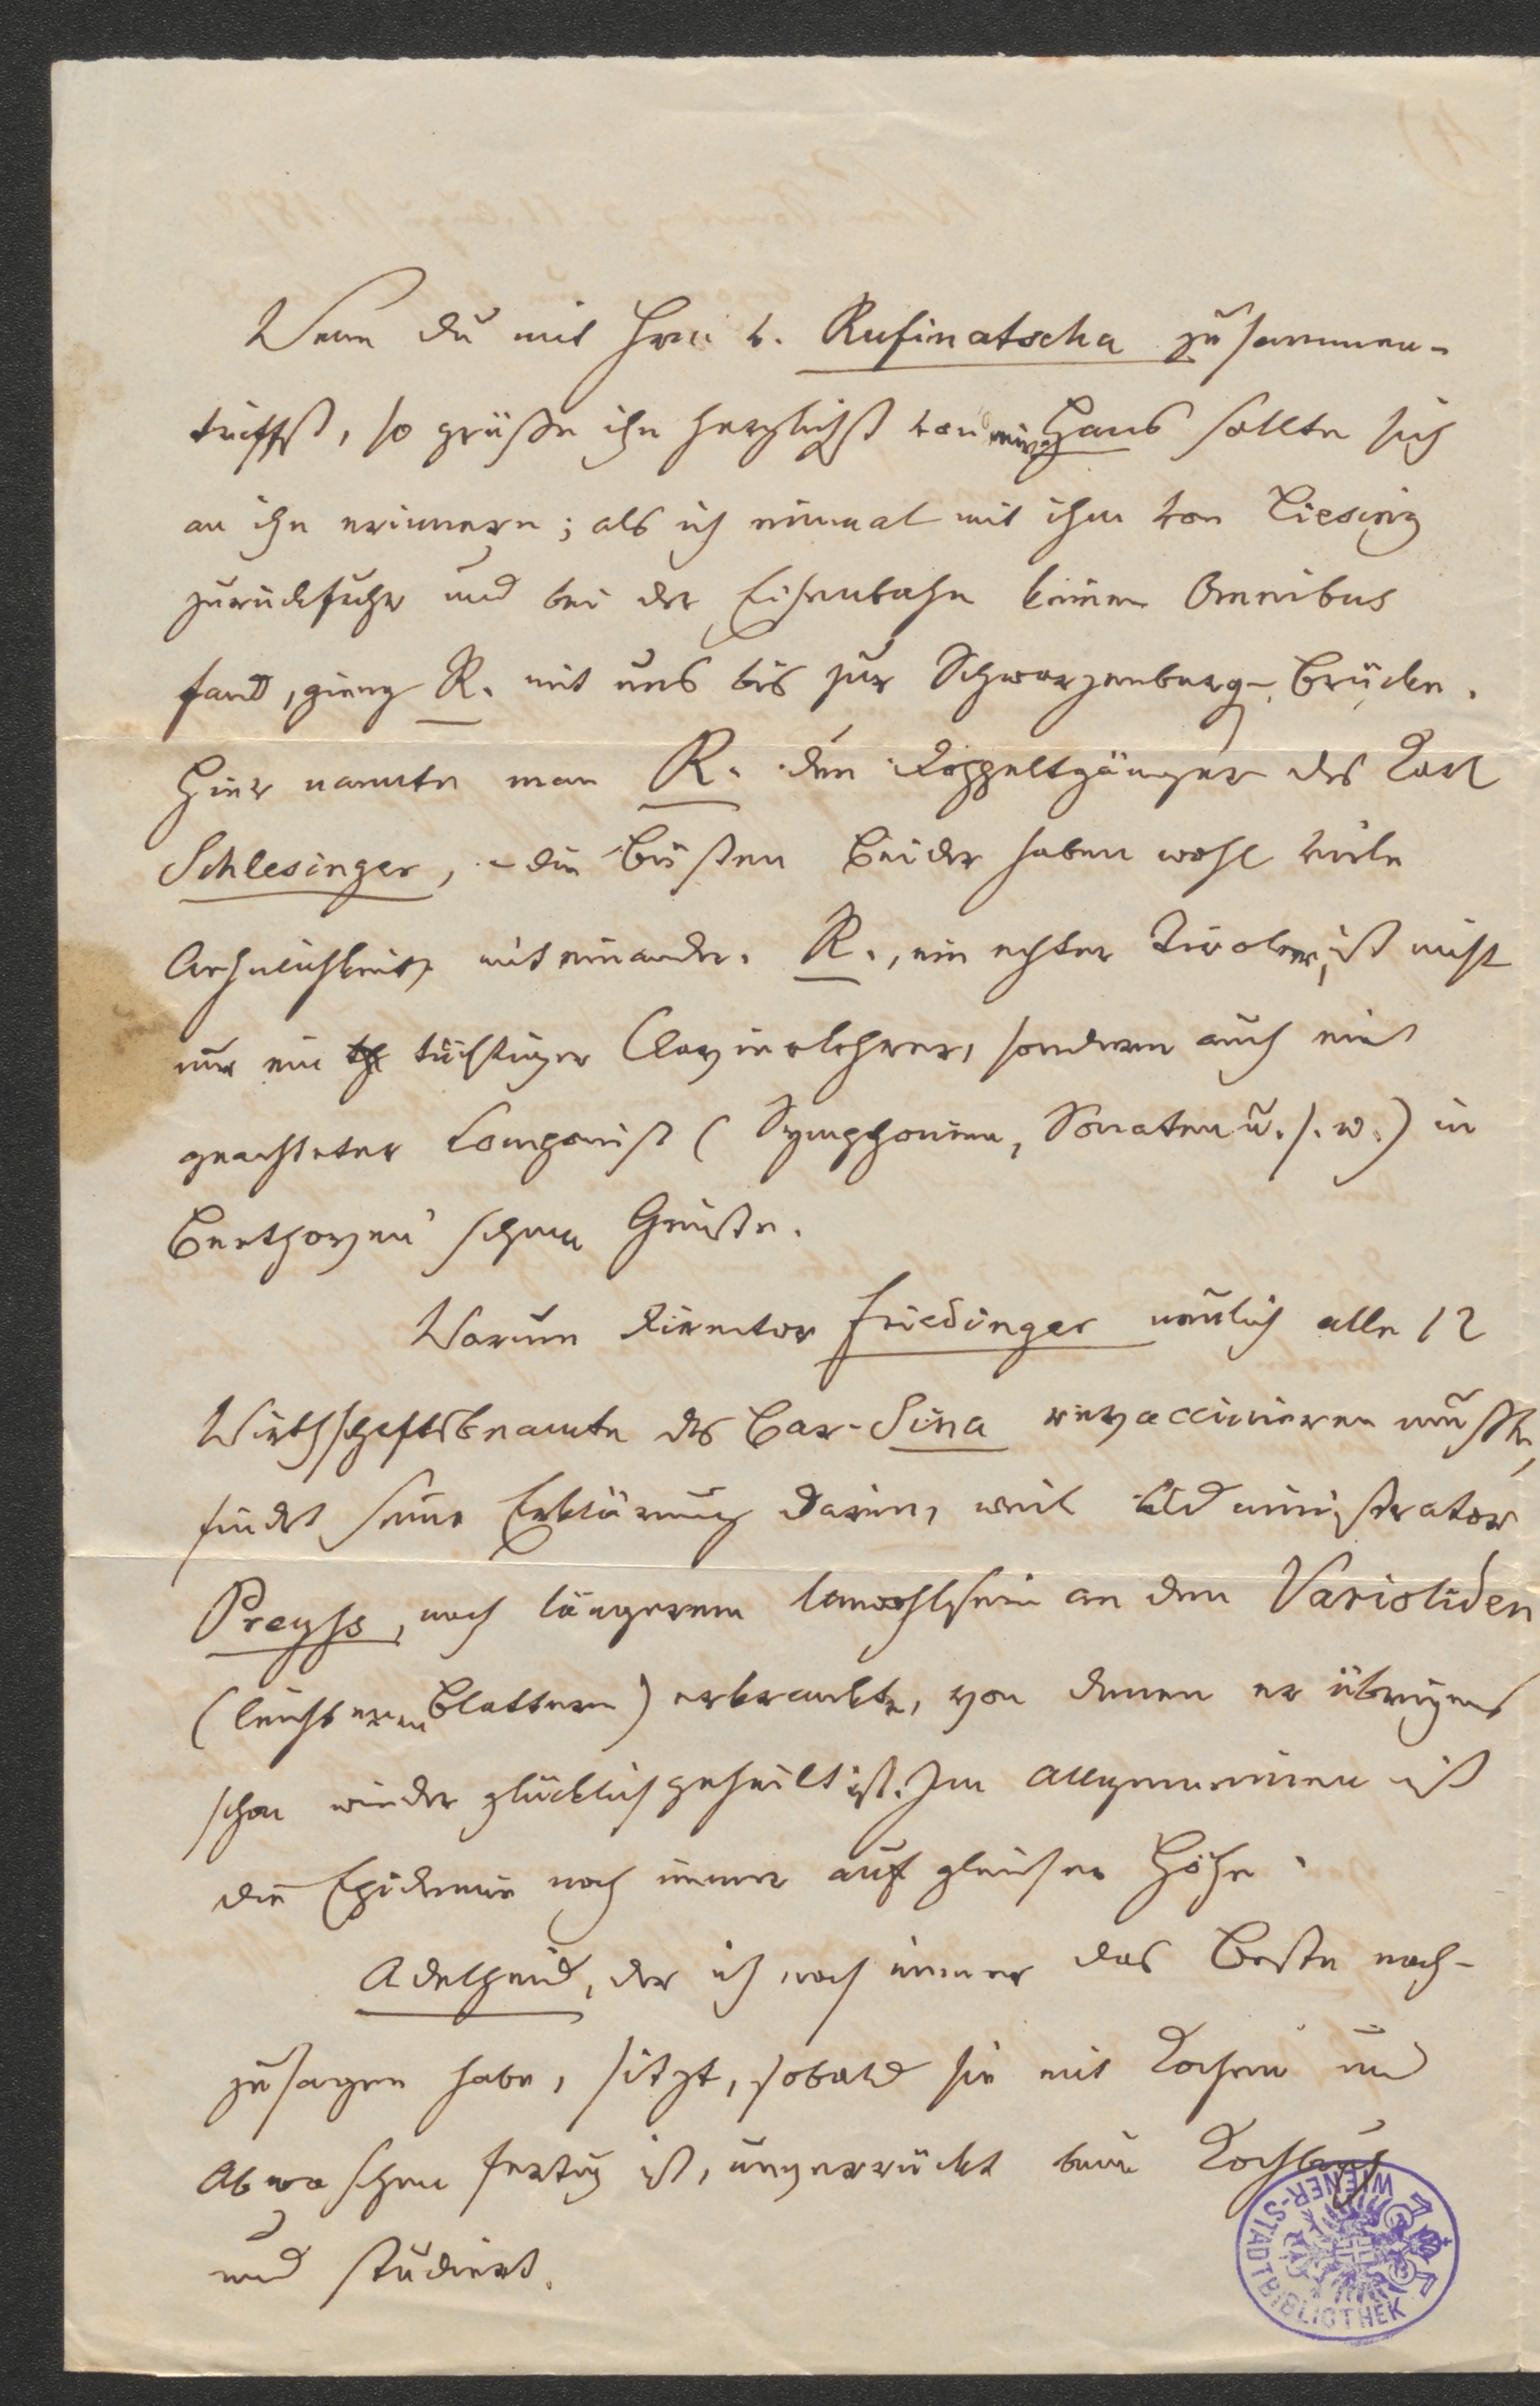 Wenn du mit Hrn v. Rufinatscha zusammen-
triffst, so grüße ihn herzlichst von mir. Hans sollte sich
an ihn erinnern; als ich einmal mit ihm von Liesing
zurückfuhr und bei der Eisenbahn keinen Omnibus
fand, gieng R. mit uns bis zur Schwarzenberg-Brücke.
Hier nannte man R. den Doppeltgänger des Karl
Schlesinger, – die Büsten Beider haben wohl viele
Aehnlichkeit miteinander. R., ein echter Tiroler, ist nicht
nur ein tüchtiger Clavierlehrer, sondern auch ein
geachteter Componist (Symphonien, Sonaten u. s. w.) in
Beethoven'schem Geiste.
Warum Director Friedinger neulich alle 12
Wirthschaftsbeamte des Bar. Sina revaccinieren mußte,
findet seine Erklärung darin, weil Administrator
Preyss, nach längerem Unwohlsein an den Varioliden
(leichteren Blattern) erkrankte, von denen er übrigens
schon wieder glücklich geheilt ist. Im Allgemeinen ist
die Epidemie noch immer auf gleicher Höhe.
Adelheid, der ich noch immer das Beste nach-
zusagen habe, sitzt, sobald sie mit Kochen und
Abwaschen fertig ist, unverrückt beim Kochbuch
und studiert.
WIENER-STADTBIBLIOTHEK